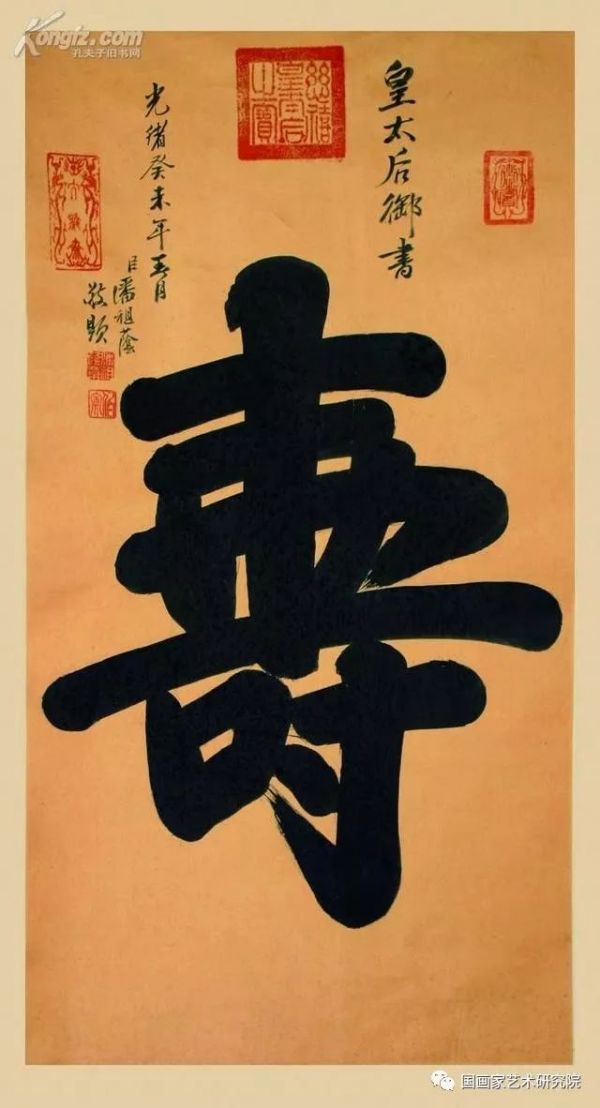 Kongfz.com
孔夫子旧书网
皇太后御書
慈禧皇太后之寶
壽
光緒癸未年五月
臣潘祖蔭
敬題
伯寅
国画家艺术研究院